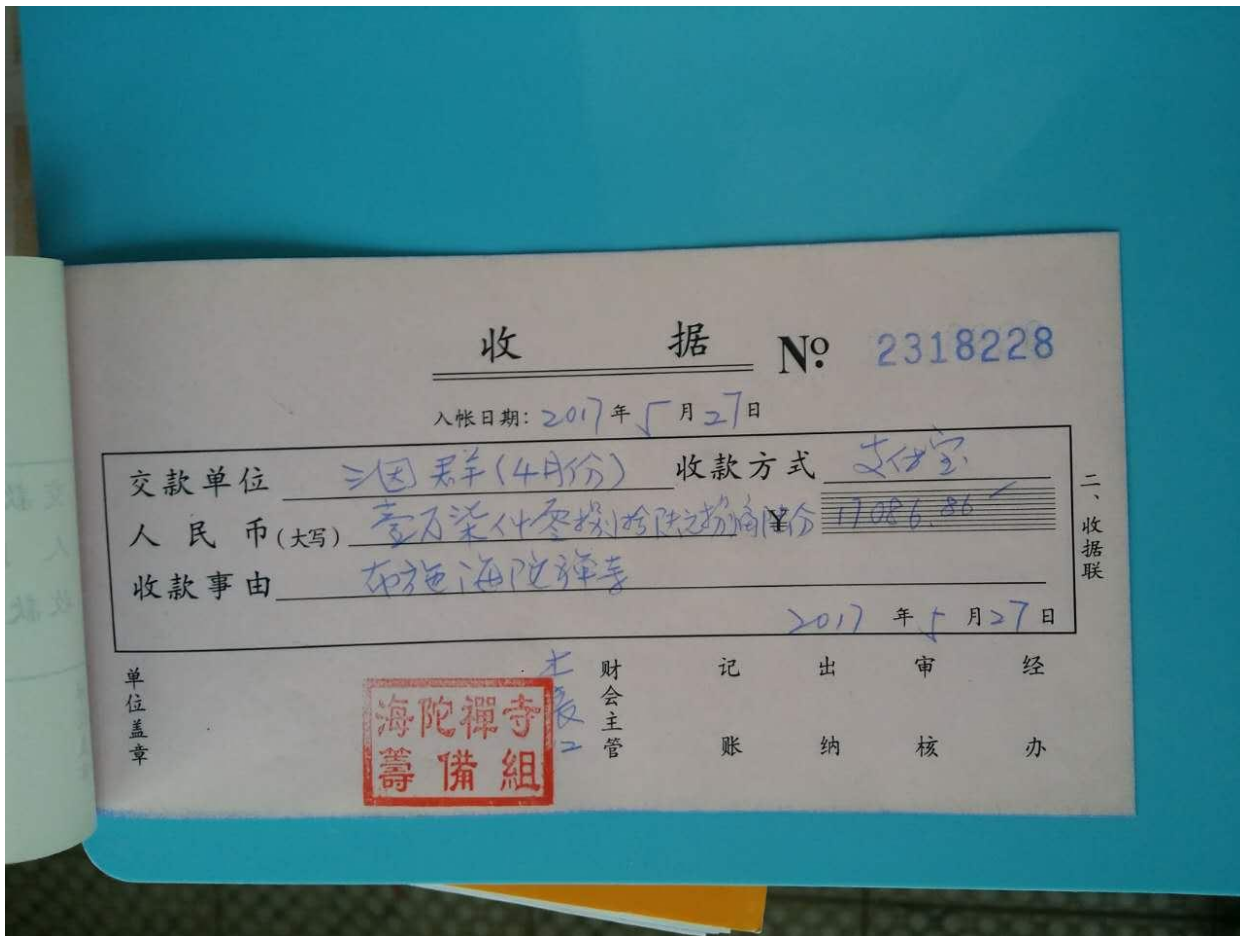 收 据 Nº 2318228
入帐日期: 2017年5月27日
交款单位 三因群(4月份) 收款方式 支付宝
人民币(大写) 壹万柒仟零捌拾陆元捌角陆分 ¥ 17086.86
收款事由 布施海陀禅寺
2017年5月27日
二、收据联
单位盖章 财会主管 记账 出纳 审核 经办
海陀禪寺
籌備組